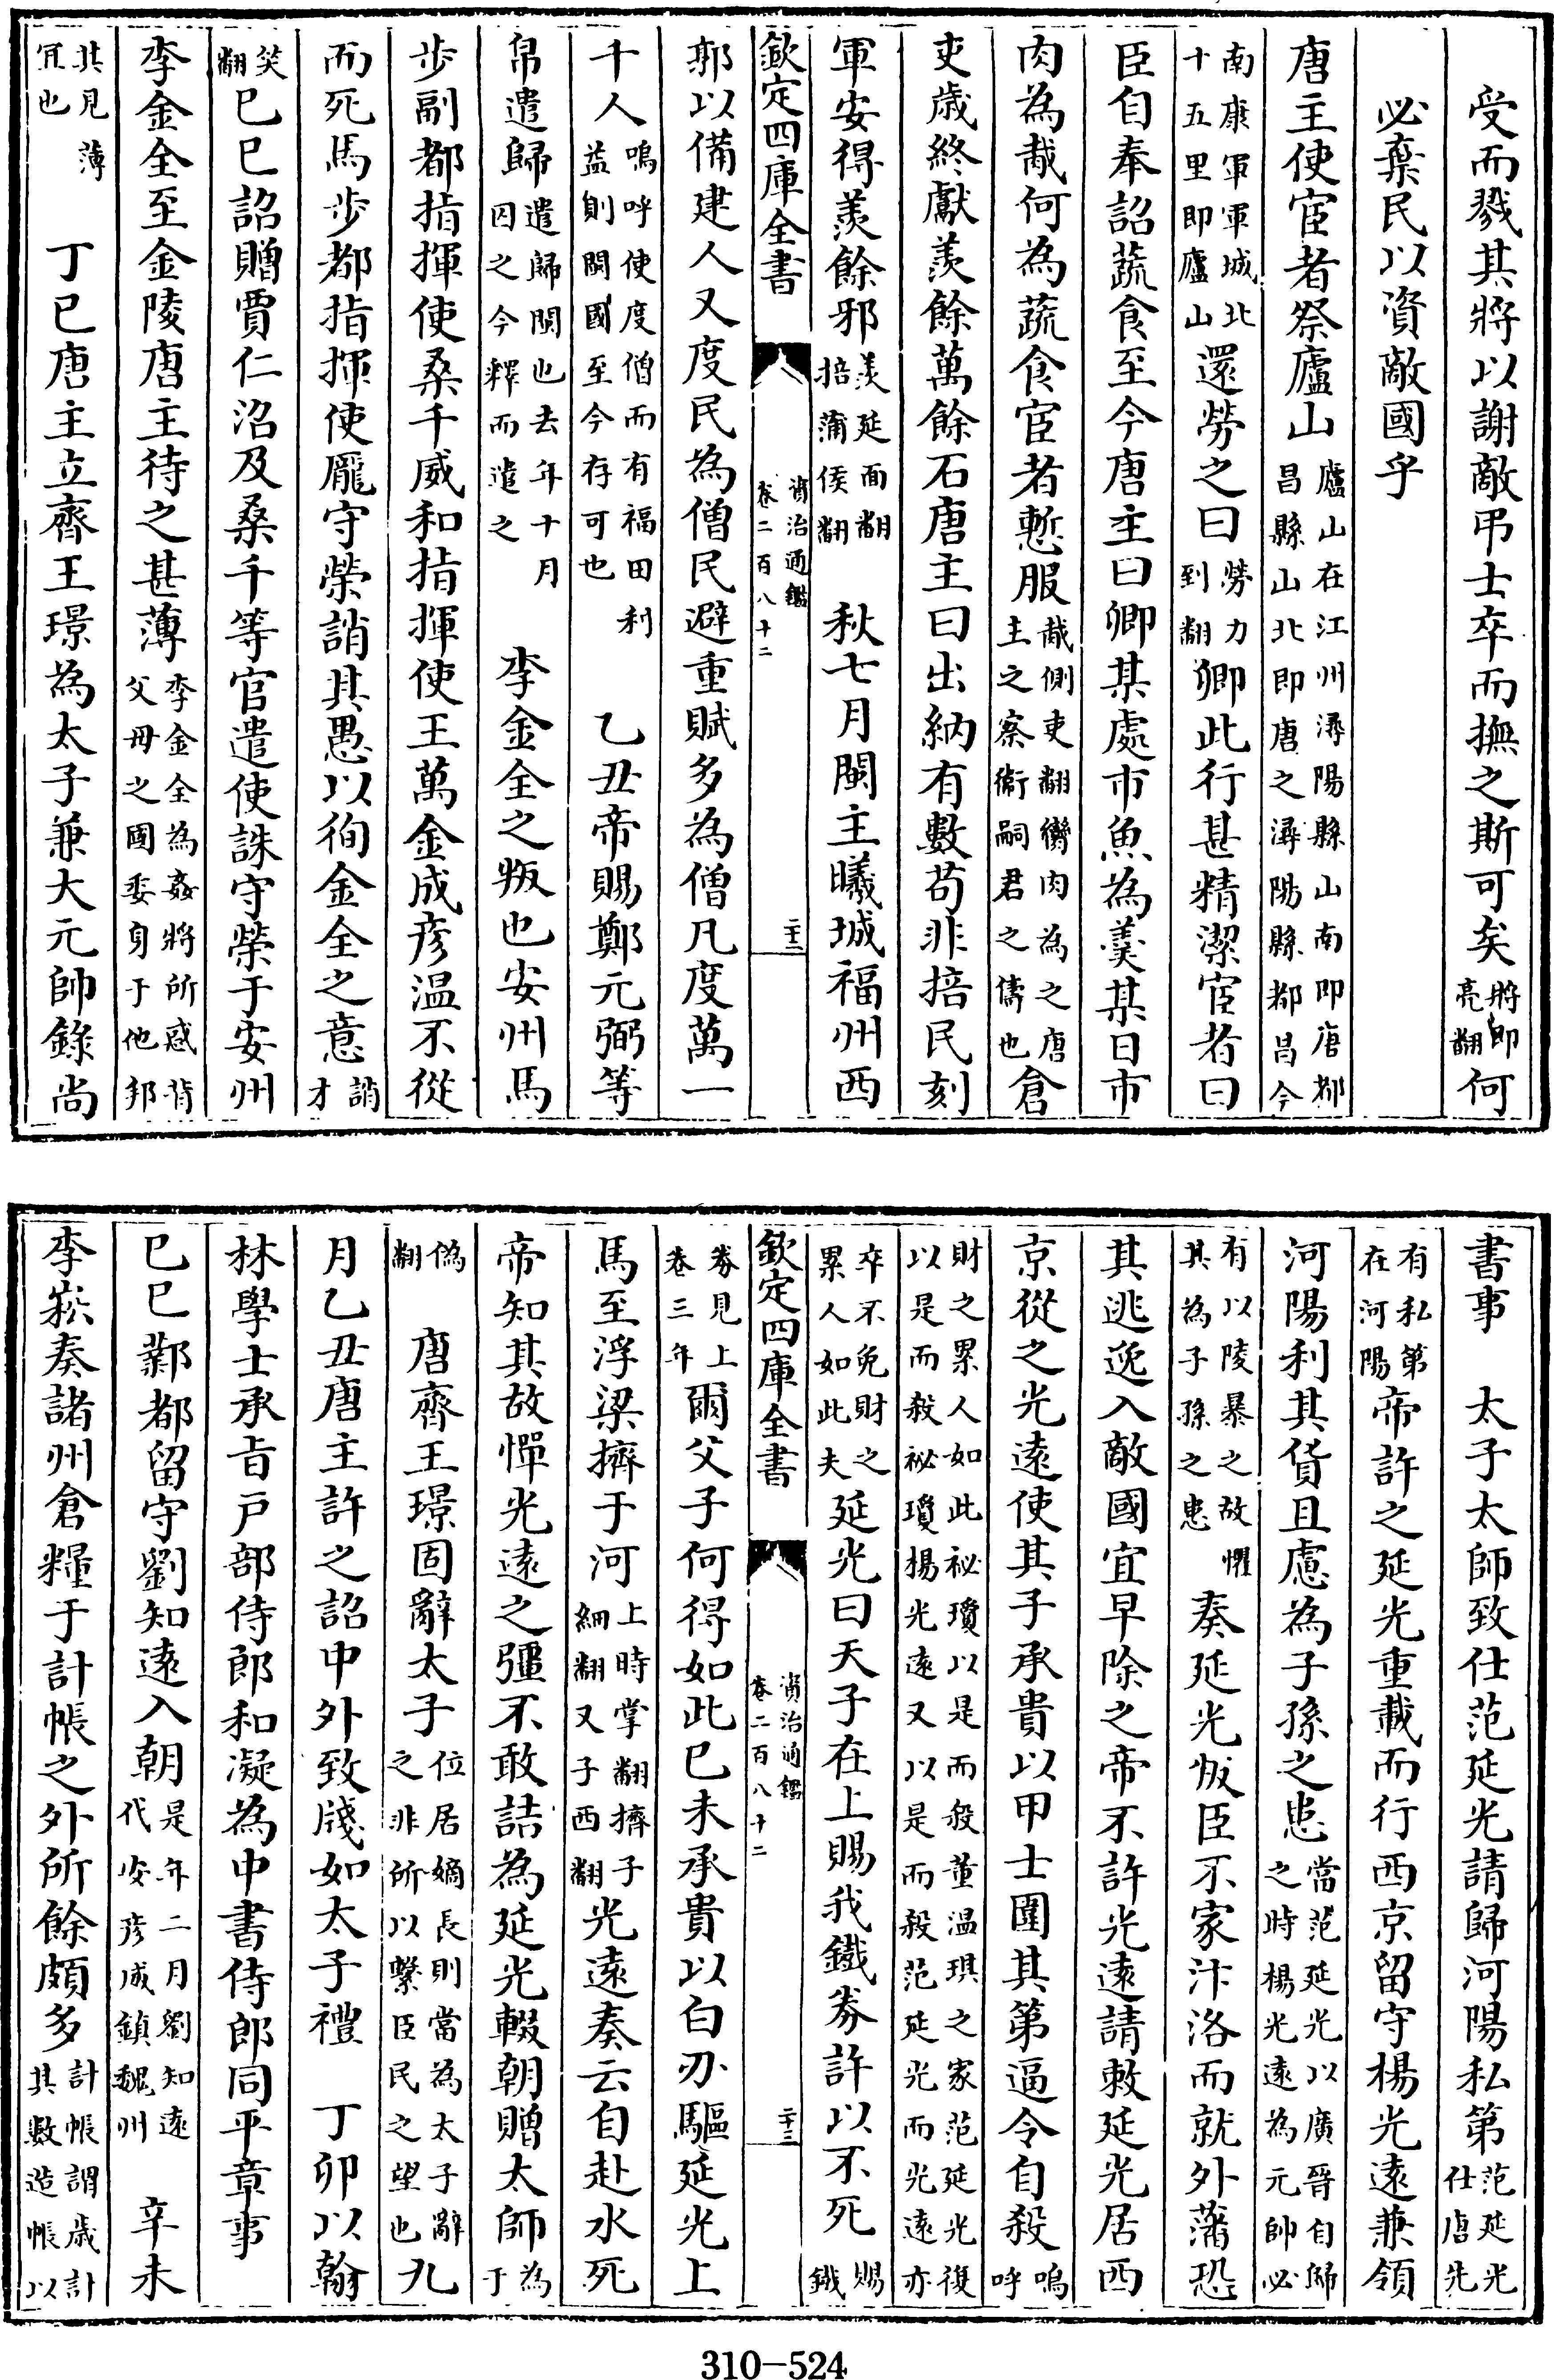 受而戮其將以謝敵弔士卒而撫之斯可矣將即亮翻何
必棄民以資敵國乎
唐主使宦者祭廬山廬山在江州潯陽縣山南即唐都昌縣山北即唐之潯陽縣都昌今
南康軍軍城北十五里即廬山還勞之曰勞力到翻卿此行甚精潔宦者曰
臣自奉詔蔬食至今唐主曰卿某處市魚為羮某日市
肉為胾何為蔬食宦者慙服胾側吏翻臠肉為之唐主之察衛嗣君之儔也倉
吏歳終獻羨餘萬餘石唐主曰出納有數苟非掊民刻
軍安得羨餘邪羨延面翻掊蒲侯翻 秋七月閩主曦城福州西
欽定四庫全書 資治通鑑卷二百八十二 二十二
郛以備建人又度民為僧民避重賦多為僧凡度萬一
千人嗚呼使度僧而有福田利益則閩國至今存可也 乙丑帝賜鄭元弼等
帛遣歸遣歸閩也去年十月囚之今釋而遣之 李金全之叛也安州馬
步副都指揮使桑千威和指揮使王萬金成彦温不從
而死馬步都指揮使龎守榮誚其愚以徇金全之意誚才
笑翻己巳詔贈賈仁沼及桑千等官遣使誅守榮于安州
李金全至金陵唐主待之甚薄李金全為姦將所惑背父母之國委身于他邦
其見薄宜也 丁巳唐主立齊王璟為太子兼大元帥錄尚
書事 太子太師致仕范延光請歸河陽私第范延光仕唐先
有私第在河陽帝許之延光重載而行西京留守楊光遠兼領
河陽利其貨且慮為子孫之患當范延光以廣晉自歸之時楊光遠為元帥必
有以陵暴之故懼其為子孫之患奏延光叛臣不家汴洛而就外藩恐
其逃逸入敵國宜早除之帝不許光遠請敕延光居西
京從之光遠使其子承貴以甲士圍其第逼令自殺嗚呼
財之累人如此祕瓊以是而殺董温琪之家范延光復以是而殺祕瓊楊光遠又以是而殺范延光而光遠亦
卒不免財之累人如此夫延光曰天子在上賜我鐵券許以不死賜鐵
欽定四庫全書 資治通鑑卷二百八十二 二十三
券見上卷三年爾父子何得如此己未承貴以白刃驅延光上
馬至浮梁擠于河上時掌翻擠子細翻又子西翻光遠奏云自赴水死
帝知其故憚光遠之彊不敢詰為延光輟朝贈太師為于
偽翻 唐齊王璟固辭太子位居嫡長則當為太子辭之非所以繫臣民之望也九
月乙丑唐主許之詔中外致牋如太子禮 丁卯以翰
林學士承旨戸部侍郎和凝為中書侍郎同平章事
己巳鄴都留守劉知遠入朝是年二月劉知遠代安彦威鎮魏州 辛未
李崧奏諸州倉糧于計帳之外所餘頗多計帳謂歳計其數造帳以
310-524